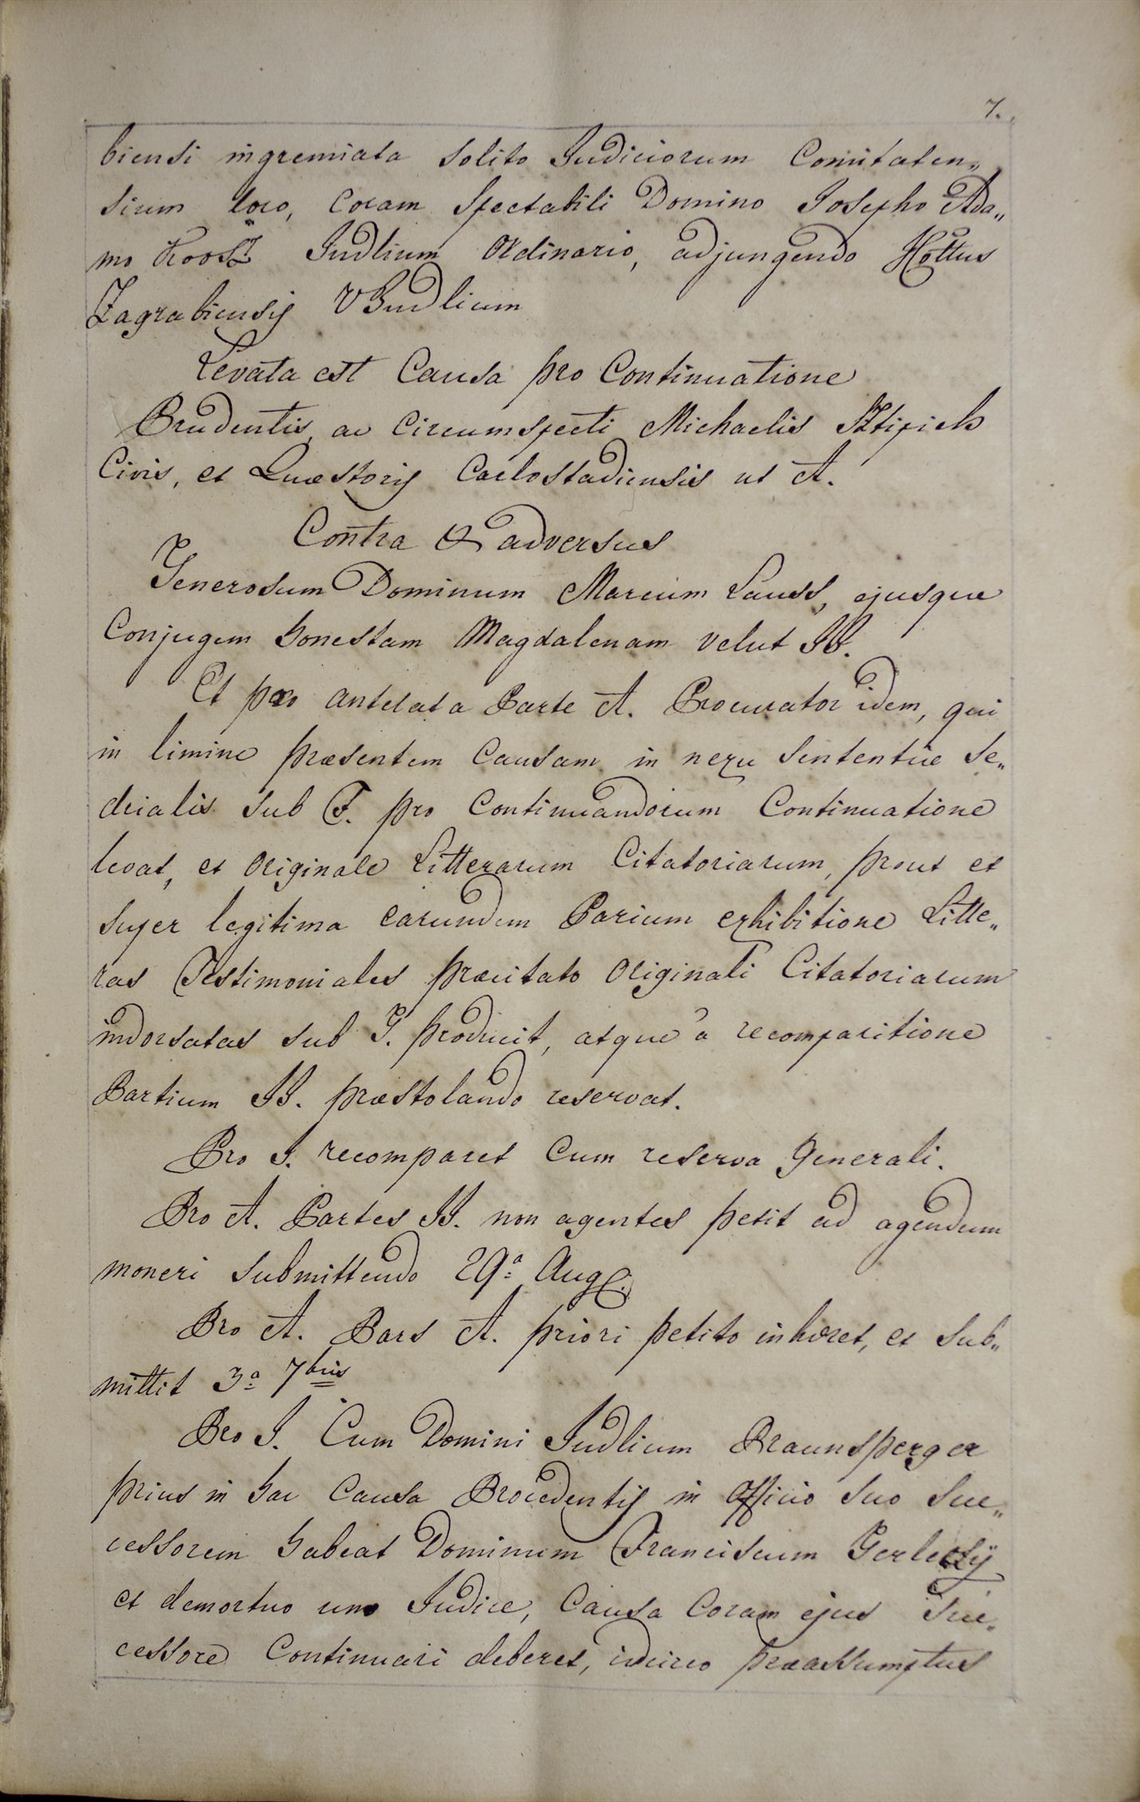 7.
biensi ingremiata solito Judiciorum Comitaten„
sium loco, coram Spectabili Domino Josepho Ada„
mo Judlium Ordinario, adjungendo Cottus
Zagrabiensis VJudlium
Levata est Causa pro Continuatione
Prudentis ac Circumspecti Michaelis Sztipich
Civis, et Quæstoris Carlostadiensis ut A.
Contra & adversus
Generosum Dominum Marcum Lauss, ejusque
Conjugem honestam Magdalenam velut JJ.
Et pro antelata Parte A. Procurator idem, qui
in limine præsentem Causam in nexu Sententiæ Se„
drialis sub F. pro Continuandorum Continuatione
levat, et Originale Litterarum Citatoriarum, prout et
super legitima earundem Parium exhibitione Litte„
ras Testimoniales præcitato Originali Citatoriarum
indorsatas sub J. producit, atque a recomparitione
Partium JJ. præstolando reservat.
Pro J. recomparet cum reserva generali.
Pro A. Partes JJ. non agentes petit ad agendum
moneri submittendo 29ª Aug.
Pro A. Pars A. priori petito inhæret, et sub„
mittit 3ª 7bris
Pro J. Cum Domini Judlium Braunsperger
prius in hac Causa Procedentis in Officio suo suc„
cessorem habeat Dominum Franciscum
et demortuo uno Judice, Causa Coram ejus Suc„
cessore Continuari deberet, idcirco præassumptus